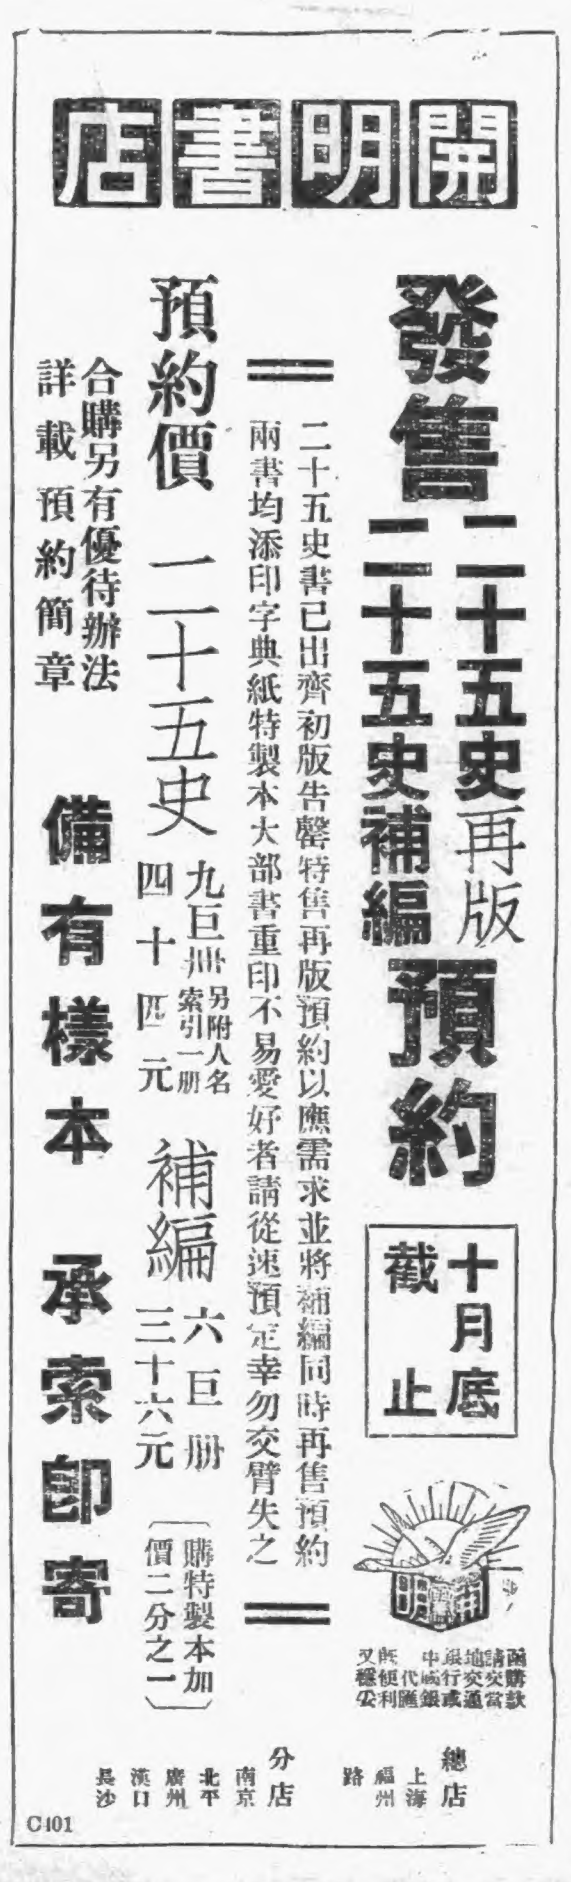 開明書店
發售
二十五史再版
二十五史補編
預約
十月底
截止
二十五史書已出齊初版告罄特售再版預約以應需求並將補編同時再售預約
兩書均添印字典紙特製本大部書重印不易愛好者請從速預定幸勿交臂失之
預約價
二十五史
九巨冊
另附人名
索引一册
四十四元
補編
六巨册
三十六元
〔購特製本加
價二分之一〕
合購另有優待辦法
詳載預約簡章
備有樣本 承索卽寄
開明
函購款
請交當
地交通
銀行或
中國銀
代匯
既便利
又穩妥
總店
上海
福州
路
分店
南京
北平
廣州
漢口
長沙
C401